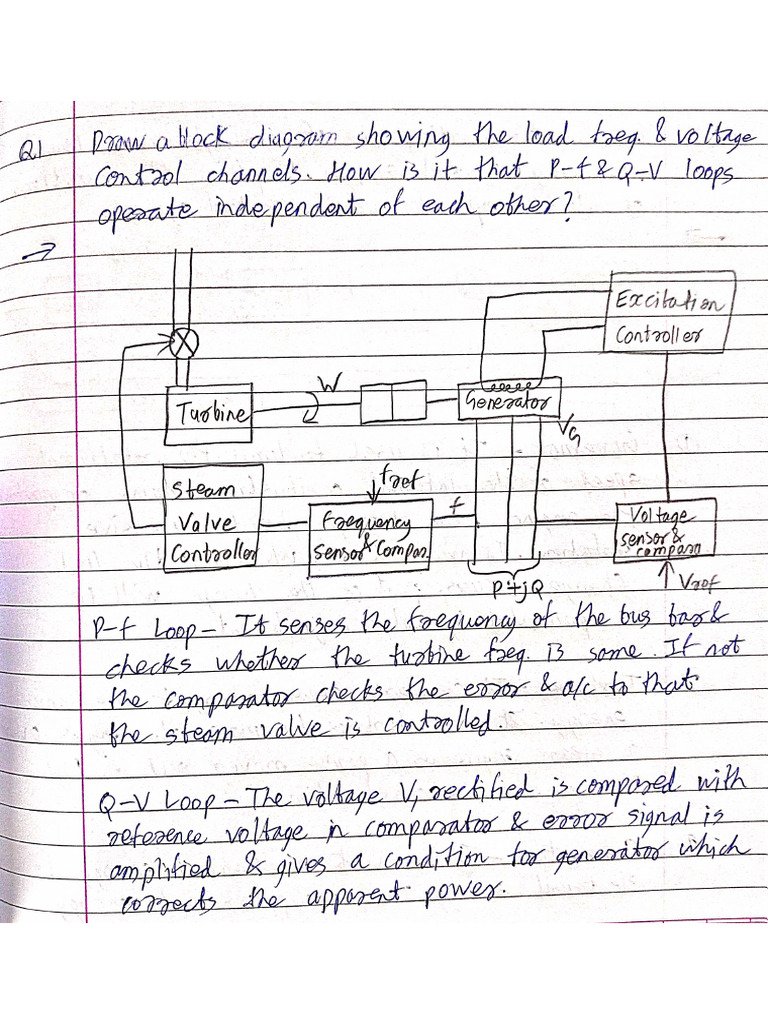 Q1 Draw a block diagram showing the load freq. & voltage
control channels. How is it that P-f & Q-V loops
operate independent of each other?
→
Excitation
Controller
W
Turbine
Generator
VG
Steam
Valve
Controller
fref
Frequency
& Sensor Compar.
f
Voltage
sensor &
compara
P+jQ
Vref
P-f Loop - It senses the frequency of the bus bar &
checks whether the turbine freq. is same. If not
the comparator checks the error & a/c to that
the steam valve is controlled.
Q-V Loop - The voltage V, rectified is compared with
reference voltage in comparator & error signal is
amplified & gives a condition for generator which
corrects the apparent power.